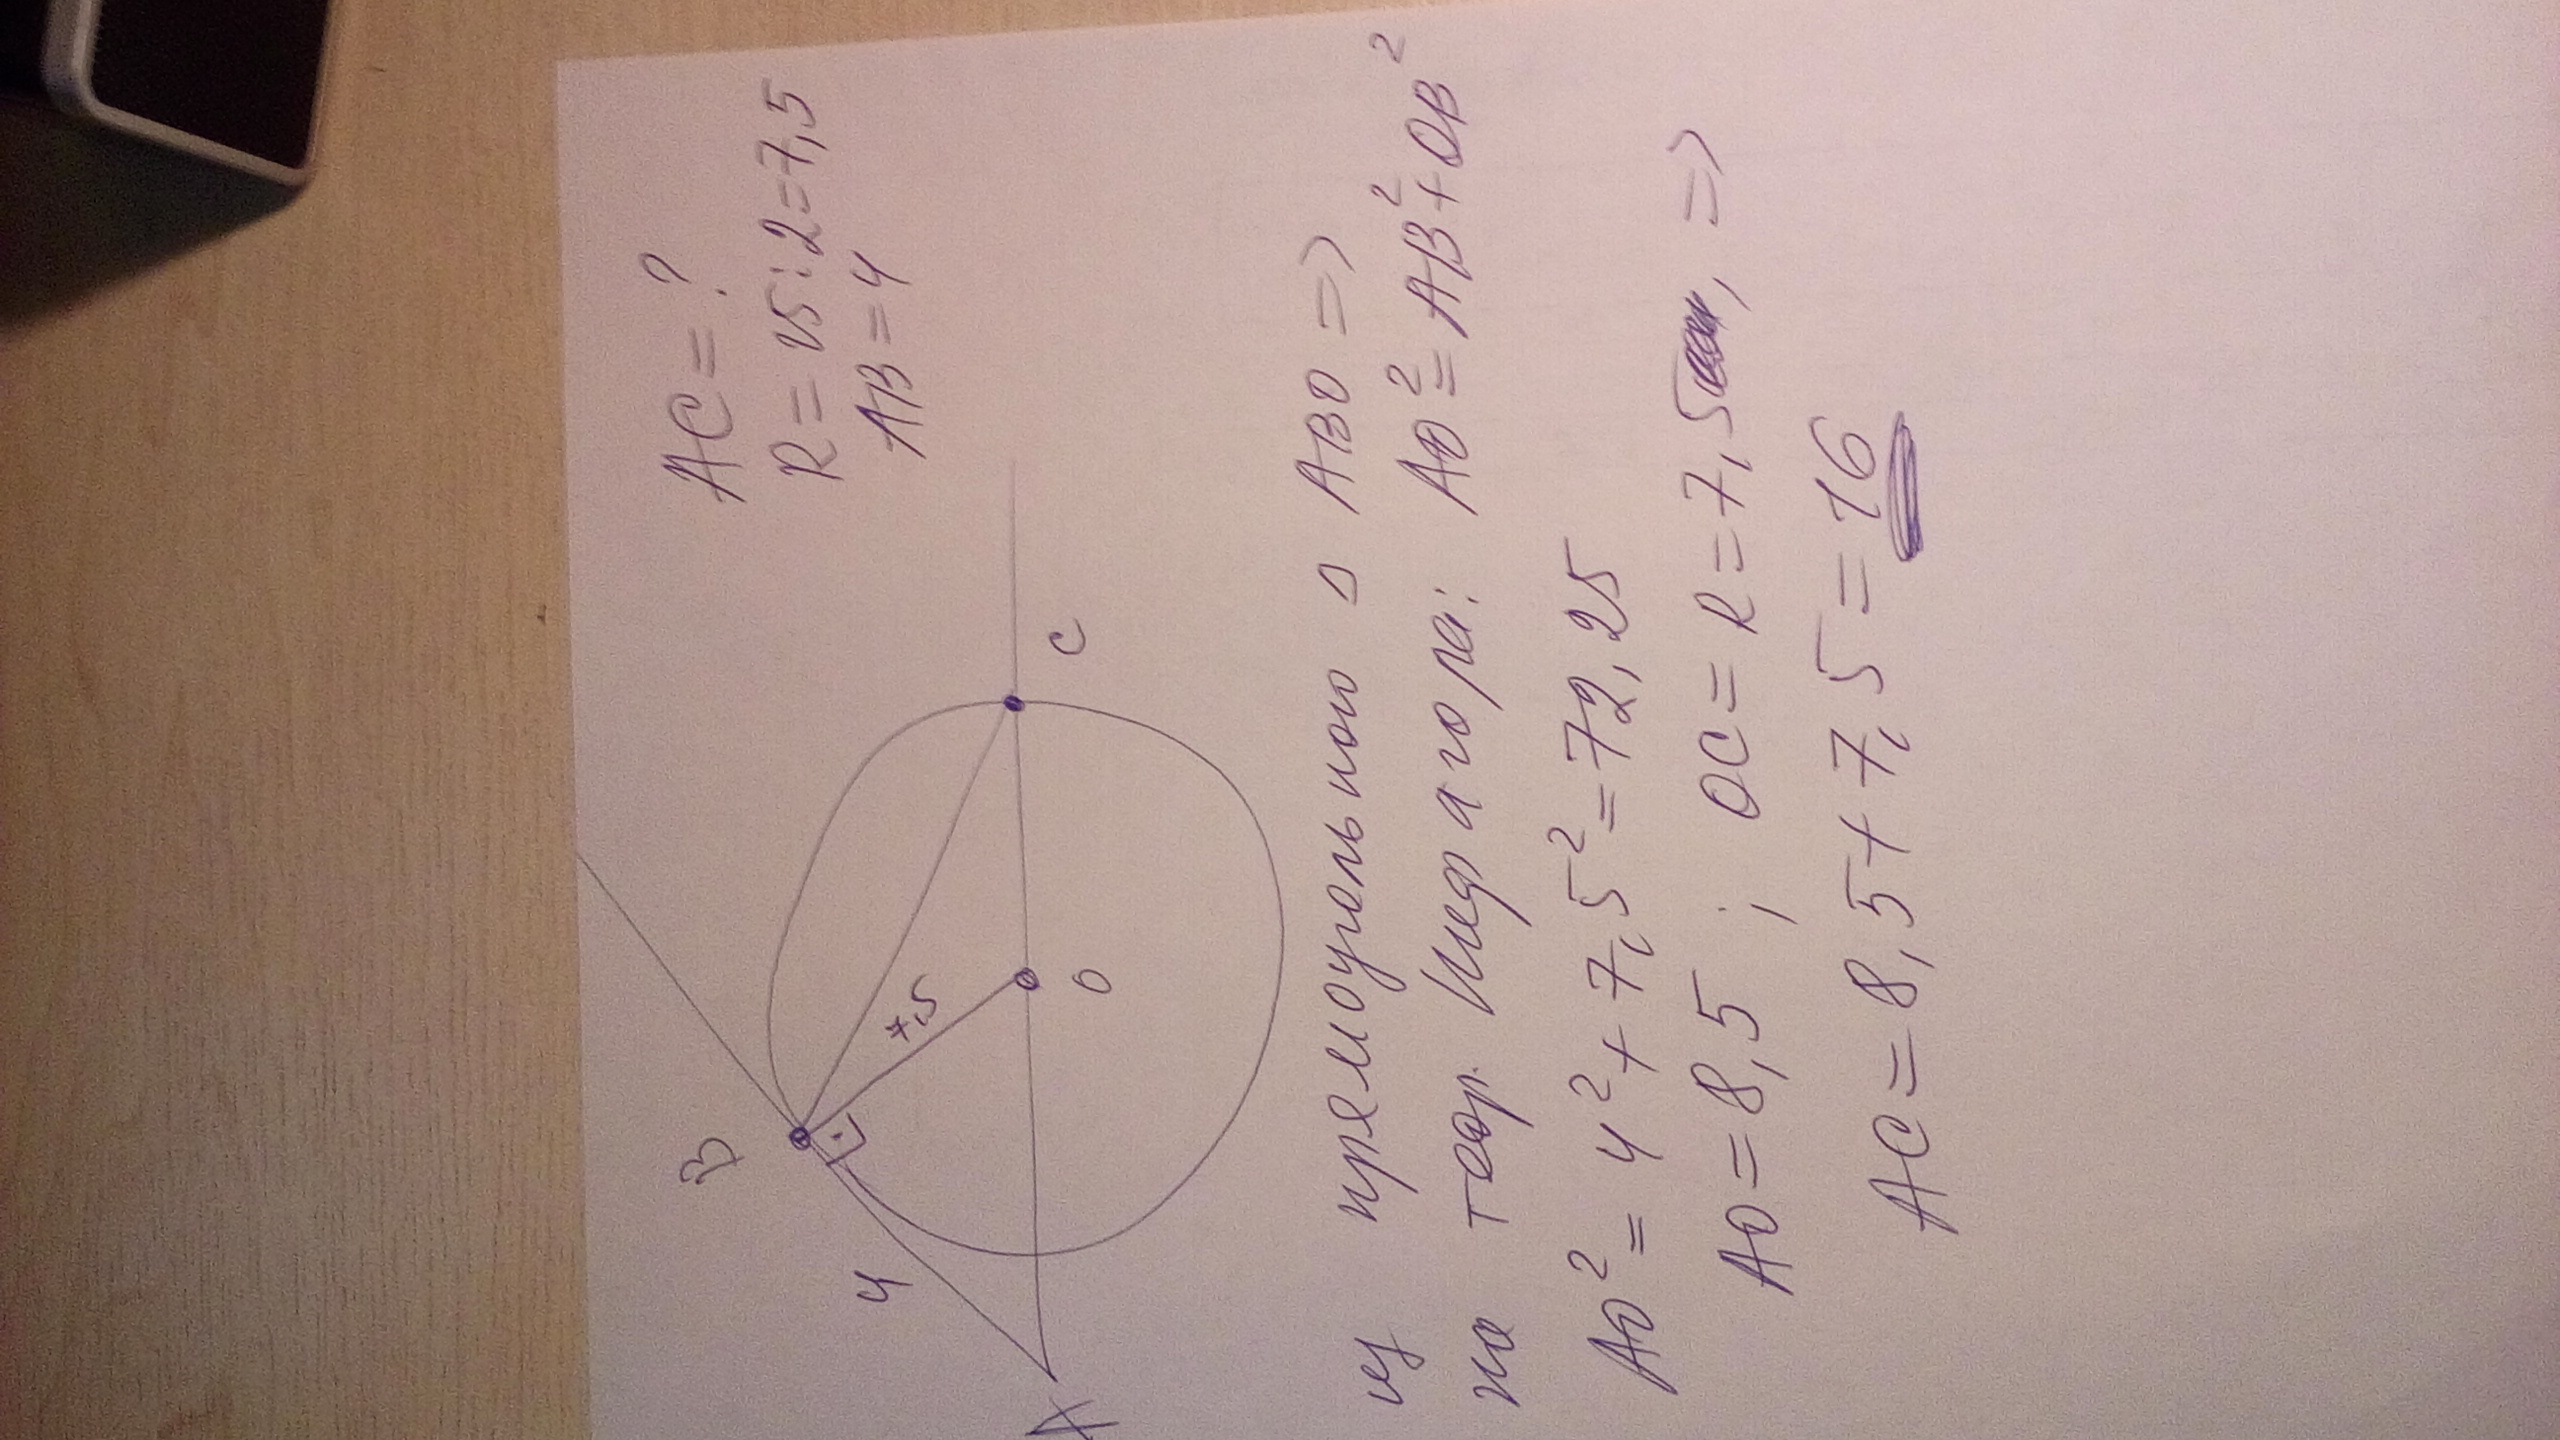 AC = ?
R = 15 : 2 = 7,5
AB = 4
B
4
7,5
A
O
C
из прямоугольного Δ ABO =>
по теор. Пифагора: AO² = AB² + OB²
AO² = 4² + 7,5² = 72,25
AO = 8,5 ; OC = R = 7,5 , =>
AC = 8,5 + 7,5 = 16